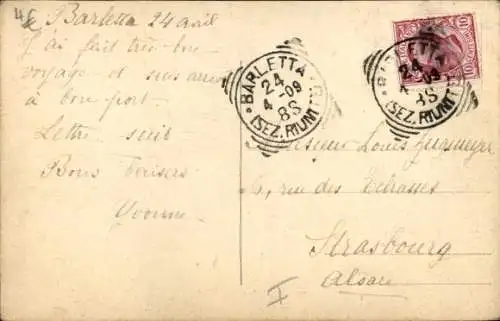 Barletta 24 avril
J'ai fait très bon
voyage et suis arrivée
à bon port.
Lettre suit
Bons baisers
Yvonne
BARLETTA
24
4 - 09
8S
(SEZ. RIUNITE)
BARLETTA
24
4 - 09
8S
(SEZ. RIUNITE)
10
10
Monsieur Louis
6, rue des Echasses
Strasbourg
Alsace
I